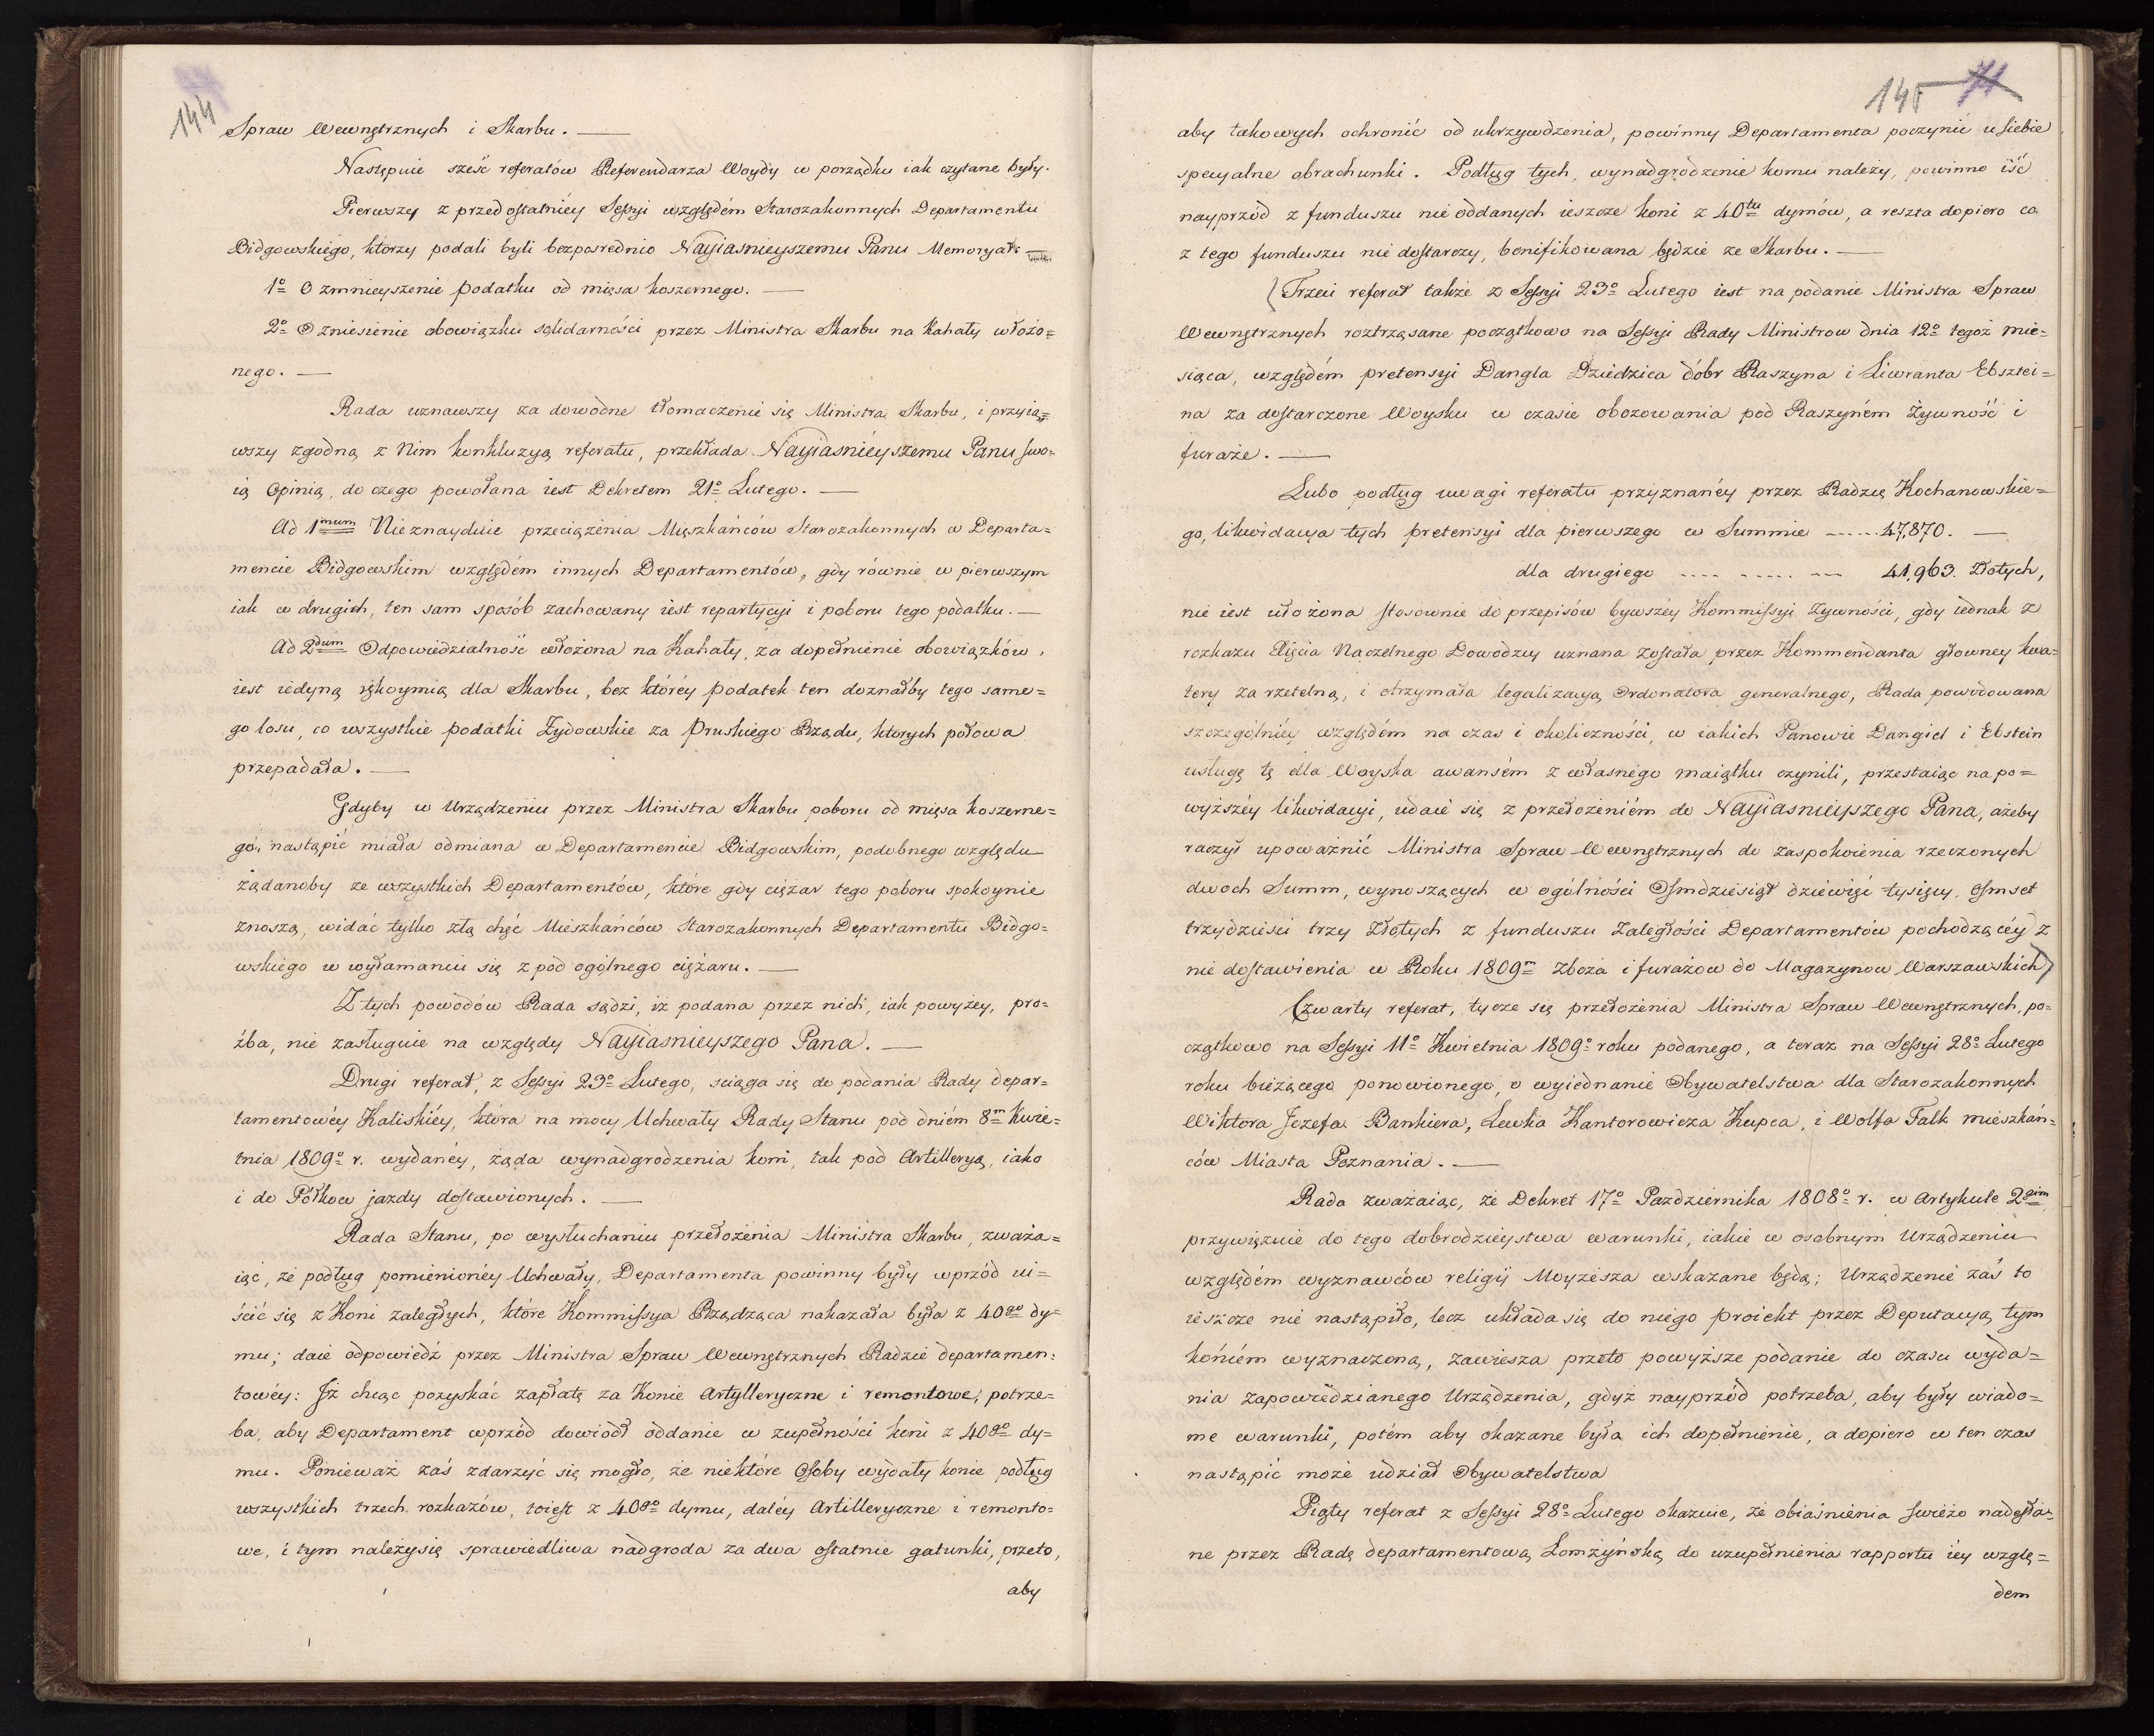 144
Spraw Wewnętrznych i Skarbu. —
Następuie sześć referatów Referendarza Woydy w porządku iak czytane były.
Pierwszy z przedostatniéy Sessyi względém Starozakonnych Departamentu
Bidgowskiego, którzy podali byli bezposrednio Nayiasnieyszemu Panu Memoryał:
1º O zmnieyszenie podatku od mięsa koszernego. —
2º O zniesienie obowiązku solidarności przez Ministra Skarbu na Kahały włożo=
nego. —
Rada uznawszy za dowodne tłomaczenie się Ministra Skarbu, i przyią=
wszy zgodną z Nim konkluzyą referatu, przekłada Nayiasniéyszemu Panu swo=
ią Opinią, do czego powołana iest Dekretem 21º Lutego. —
Ad 1mum Nieznayduie przeciążenia Mięszkańców Starozakonnych w Departa=
mencie Bidgowskim względém innych Departamentów, gdy równie w pierwszym
iak w drugich, ten sam sposób zachowany iest repartycyi i poboru tego podatku. —
Ad 2dum Odpowiedzialność włożona na Kahały, za dopełnienie obowiązków,
iest iedyną rękoymią dla Skarbu, bez któréy podatek ten doznałby tego same=
go losu, co wszystkie podatki Żydowskie za Pruskiego Rządu, których połowa
przepadała. —
Gdyby w Urządzeniu przez Ministra Skarbu poboru od mięsa koszerne=
go, nastąpić miała odmiana w Departamencie Bidgowskim, podobnego względu
żądanoby ze wszystkich Departamentów, które gdy ciężar tego poboru spokoynie
znoszą, widać tylko złą chęć Mieszkańców Starozakonnych Departamentu Bidgo=
wskiego w wyłamaniu się z pod ogólnego ciężaru. —
Z tych powodów Rada sądzi, iż podana przez nich, iak powyżey, pro=
źba, nie zasługuie na względy Nayiasnieyszego Pana. —
Drugi referat, z Sessyi 23º Lutego, sciąga się do podania Rady depar=
tamentowéy Kaliskiéy, która na mocy Uchwały Rady Stanu pod dniém 8m Kwie=
tnia 1809º r. wydanéy, żąda wynadgrodzenia koni, tak pod Artilleryą, iako
i do Półkow jazdy dostawionych. —
Rada Stanu, po wysłuchaniu przełożenia Ministra Skarbu, zważa=
iąc, że podług pomienionéy Uchwały, Departamenta powinny były wprzód ui=
ścić się z Koni zaległych, które Kommissya Rządząca nakazała była z 40go dy=
mu; daie odpowiedź przez Ministra Spraw Wewnętrznych Radzie departamen=
towéy: Iż chcąc pozyskać zapłatę za Konie Artylleryczne i remontowe, potrze=
ba, aby Departament wprzód dowiódł oddanie w zupełności koni z 40go dy=
mu. Ponieważ zaś zdarzyć się mogło, że niektóre Osoby wydały konie podług
wszystkich trzech rozkazów, toiest z 40go dymu, daléy Artilleryczne i remonto=
we, i tym należy się sprawiedliwa nadgroda za dwa ostatnie gatunki, przeto,
aby
145 71
aby takowych ochronić od ukrzywdzenia, powinny Departamenta poczynić u siebie
specyalne obrachunki. Podług tych, wynadgrodzenie komu należy, powinno iść
nayprzód z funduszu nieoddanych ieszcze koni z 40tu dymów, a reszta dopiero co
z tego funduszu nie dostarczy, bonifikowana będzie ze Skarbu. —
Trzeci referat także z Sessyi 23º Lutego iest na podanie Ministra Spraw
Wewnętrznych roztrząsane początkowo na Sessyi Rady Ministrow dnia 12º tegoż mie=
siąca, względém pretensyi Dangla Dziedzica dóbr Raszyna i Liwranta Ebsztei=
na za dostarczone Woysku w czasie obozowania pod Raszyném żywność i
furaże. —
Lubo podług uwagi referatu przyznanéy przez Radzcę Kochanowskie=
go, likwidacya tych pretensyi dla pierwszego w Summie ----- 47,870. —
dla drugiego ---- ----- --- 41,963. Złotych,
nie iest ułożona stosownie do przepisów bywszéy Kommissyi żywności, gdy iednak z
rozkazu Xięcia Naczelnego Dowódzcy uznana została przez Kommendanta głowney kwa=
tery za rzetelną, i otrzymała legalizacyą Ordonatora generalnego, Rada powodowana
szczególniéy względém na czas i okoliczności, w iakich Panowie Dangiel i Ebstein
usługę tę dla Woyska awansém z własnégo maiątku czynili, przestaiąc na po=
wyższéy likwidacyi, udaie się z przełożeniém do Nayiasnieyszego Pana, ażeby
raczył upoważnić Ministra Spraw Wewnętrznych do zaspokoienia rzeczonych
dwoch Summ, wynoszących w ogólności Osmdziesiąt dziewięć tysięcy, Osmset
trzydzieści trzy Złotych z funduszu Zaległości Departamentów pochodzącéy z
nie dostawienia w Roku 1809m zboża i furażow do Magazynow Warszawskich
Czwarty referat, tycze się przełożenia Ministra Spraw Wewnętrznych, po=
czątkowo na Sessyi 11º Kwietnia 1809º roku podanego, a teraz na Sessyi 28º Lutego
roku bieżącego ponowionego, o wyiednanie Obywatelstwa dla Starozakonnych
Wiktora Jzefa Bankiera, Lewka Kantorowicza Kupca, i Wolfa Falk mieszkań=
ców Miasta Poznania. —
Rada zważaiąc, że Dekret 17º Października 1808º r. w Artykule 2gim
przywięzuie do tego dobrodzieystwa warunki, iakie w osobnym Urządzeniu
względém wyznawców religii Moyżesza wskazane będą; Urządzenie zaś to
ieszcze nie nastąpiło, lecz układa się do niego proiekt przez Deputacyą tym
końcém wyznaczoną, zawiesza przeto powyższe podanie do czasu wyda=
nia zapowiedzianego Urządzenia, gdyż nayprzód potrzeba, aby były wiado=
me warunki, potém aby okazane była ich dopełnienie, a dopiero w ten czas
nastąpić może udział Obywatelstwa
Piąty referat z Sessyi 28º Lutego okazuie, że obiaśnienia świéżo nadesła=
ne przez Radę departamentową Łomżyńską do uzupełnienia rapportu iey wzglę=
dem